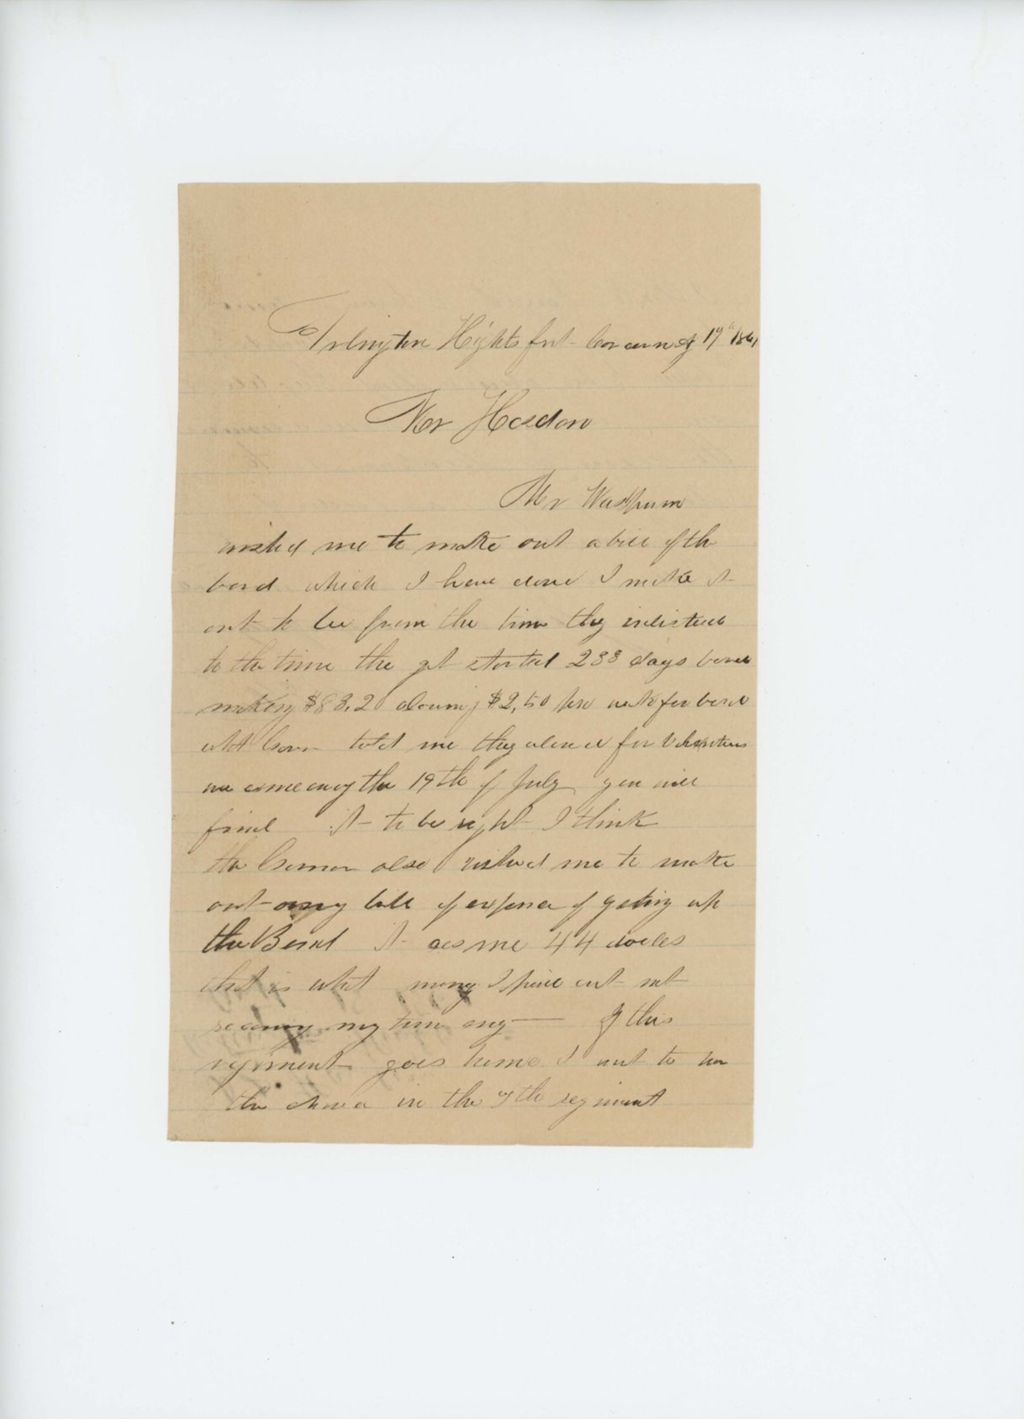 Arlington Hights fort Corcorn 17th 1861
Mr Hosdon
Mr Washburn
wished me to make out a bill of the
bord which I have done I make it
out to be from the time they inlisted
to the time the got started 233 days bord
making $83,20 alowing $2,50 per week for bord
what Govner told me they alowed for Volunteers
we come away the 19th of July you will
find it to be right I think
the Govner also wished me to make
out my bill of expence of geting up
the Band it cos me 44 dolles
that is what mony I paid out not
recaning my time any If this
regiment goes home I want to have
the chance in the 7th regiment